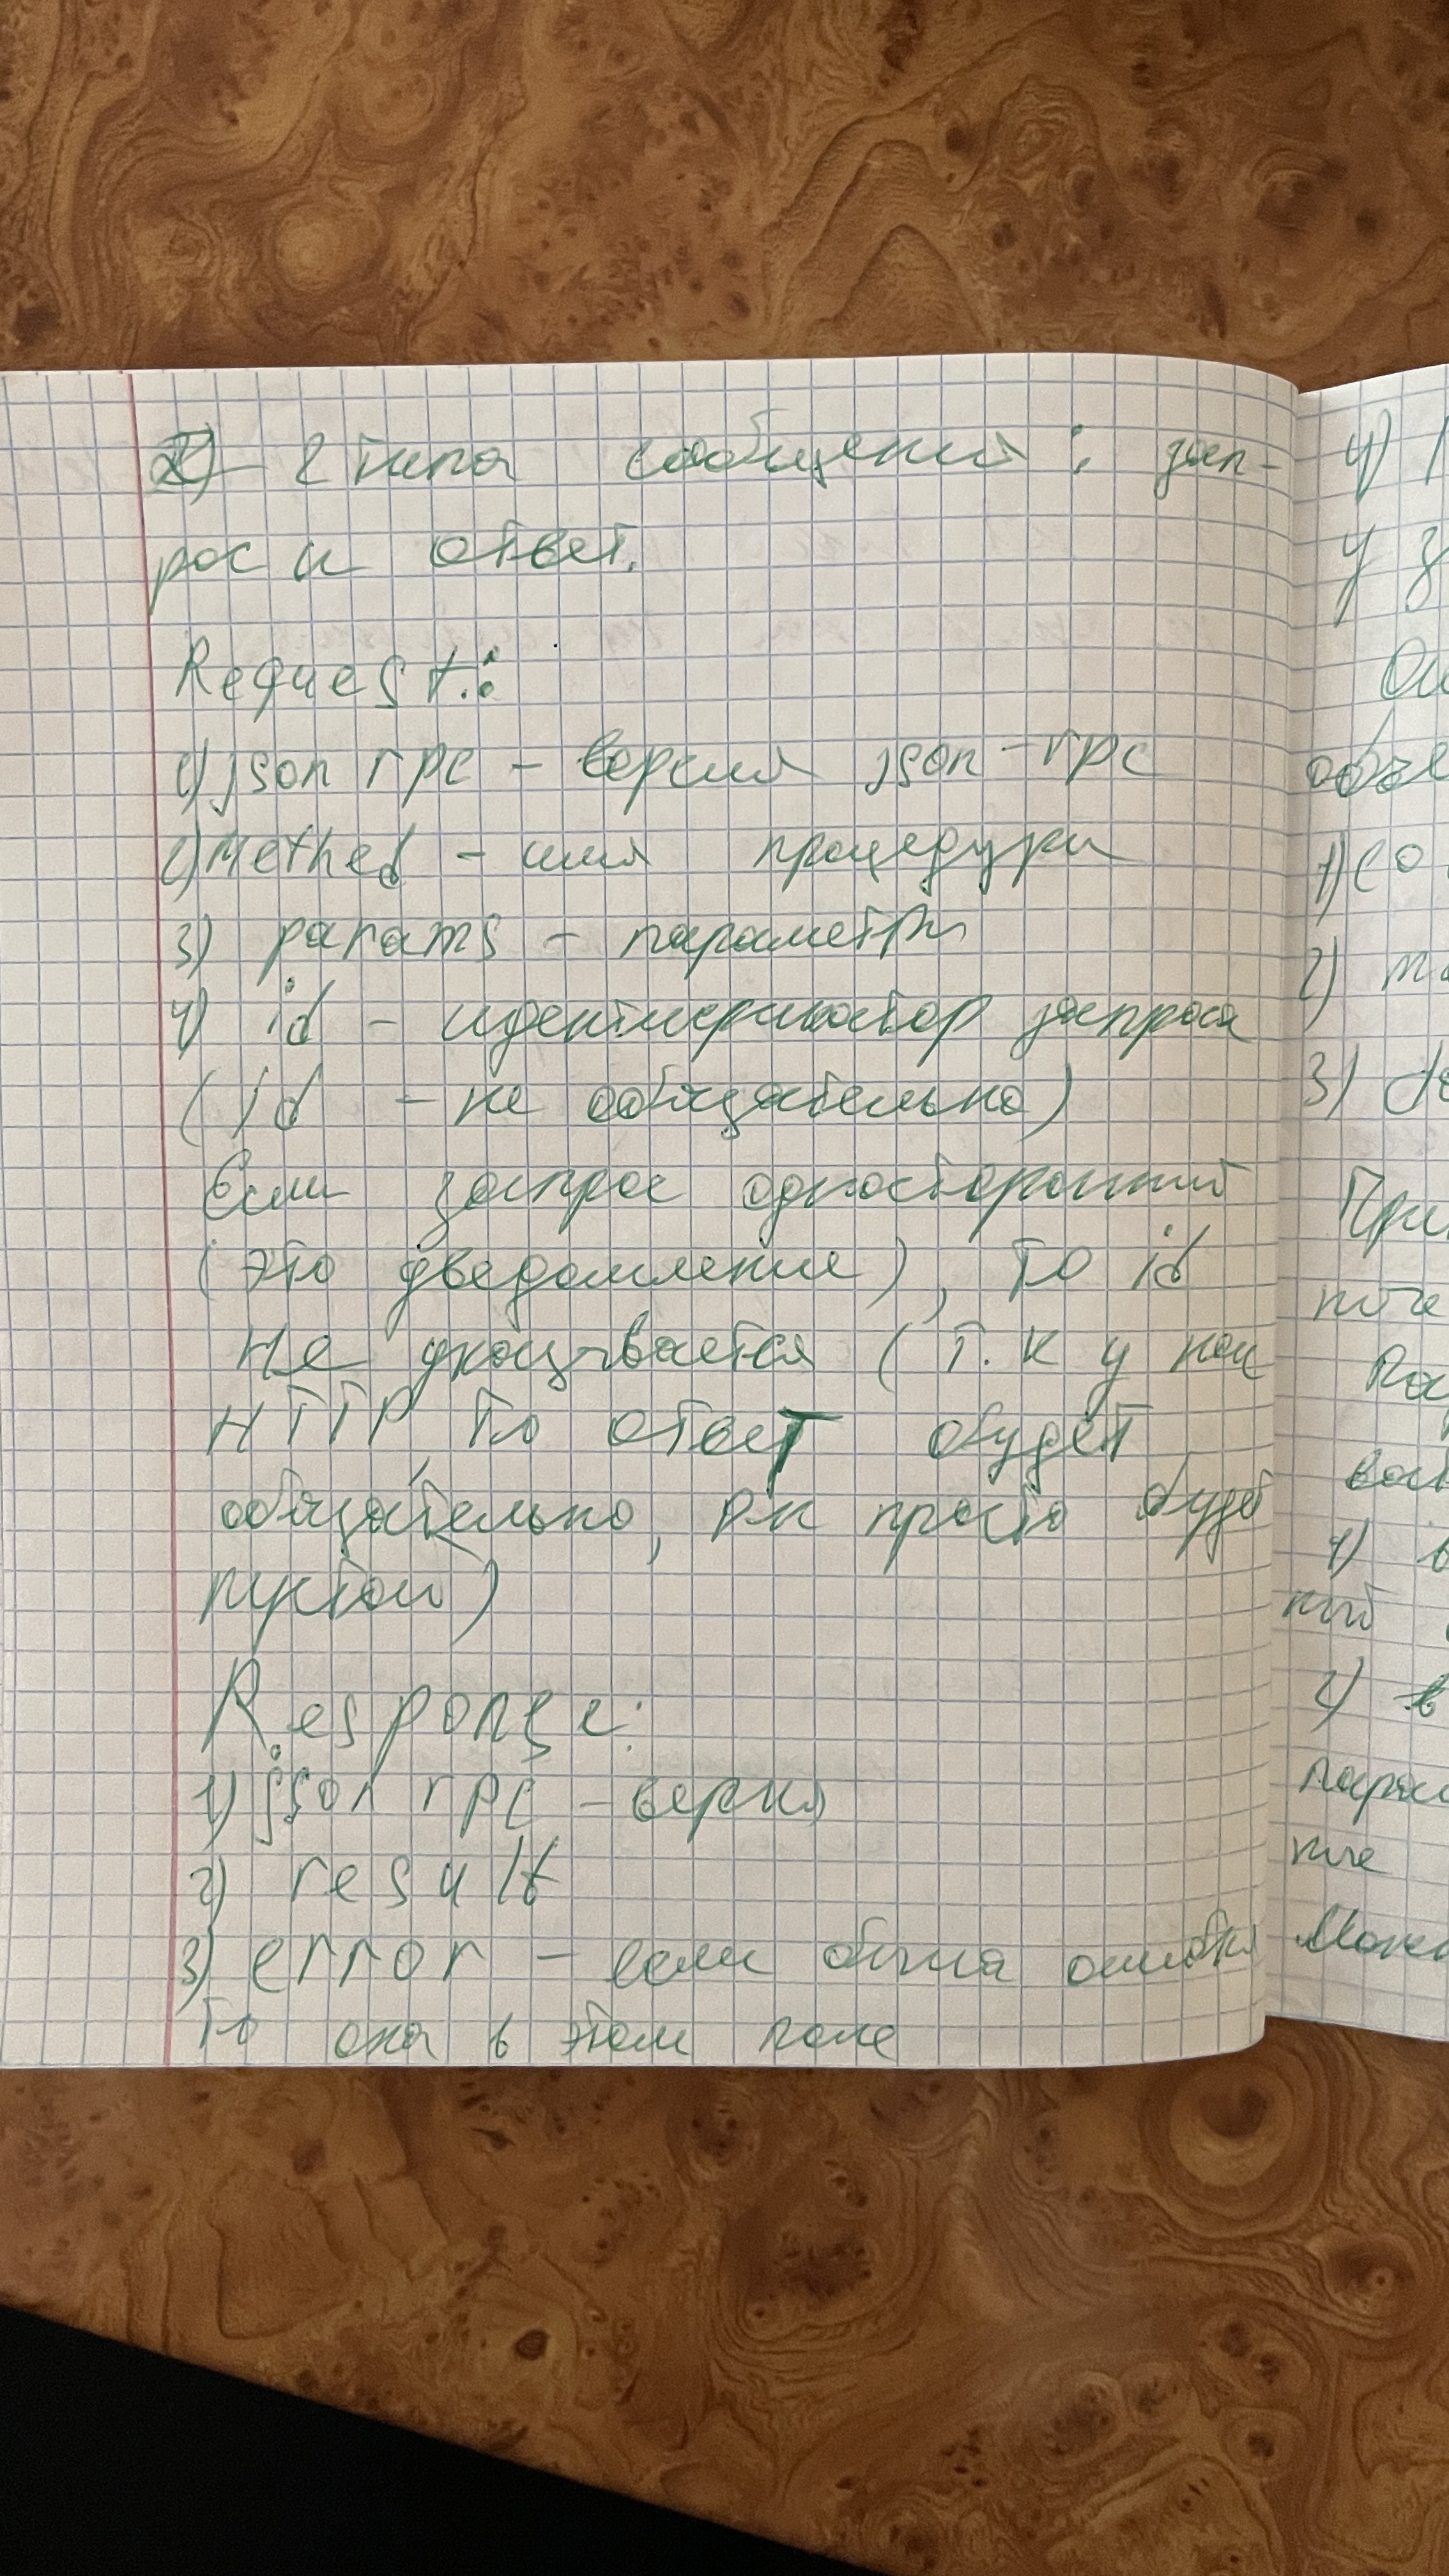 2 типа сообщений: зап-
рос и ответ.
Request:
1) jsonrpc - версия json-rpc
2) Method - имя процедуры
3) params - параметры
4) id - идентификатор запроса
(id - не обязательно)
Если запрос односторонний
(это уведомление), то id
не указывается (т.к у нас
HTTP, то ответ будет
обязательно, он просто будет
пустой)
Response:
1) jsonrpc - версия
2) result
3) error - если была ошибка
то она в этом поле
4)
у
1) со
2)
3)
При
1)
2) в